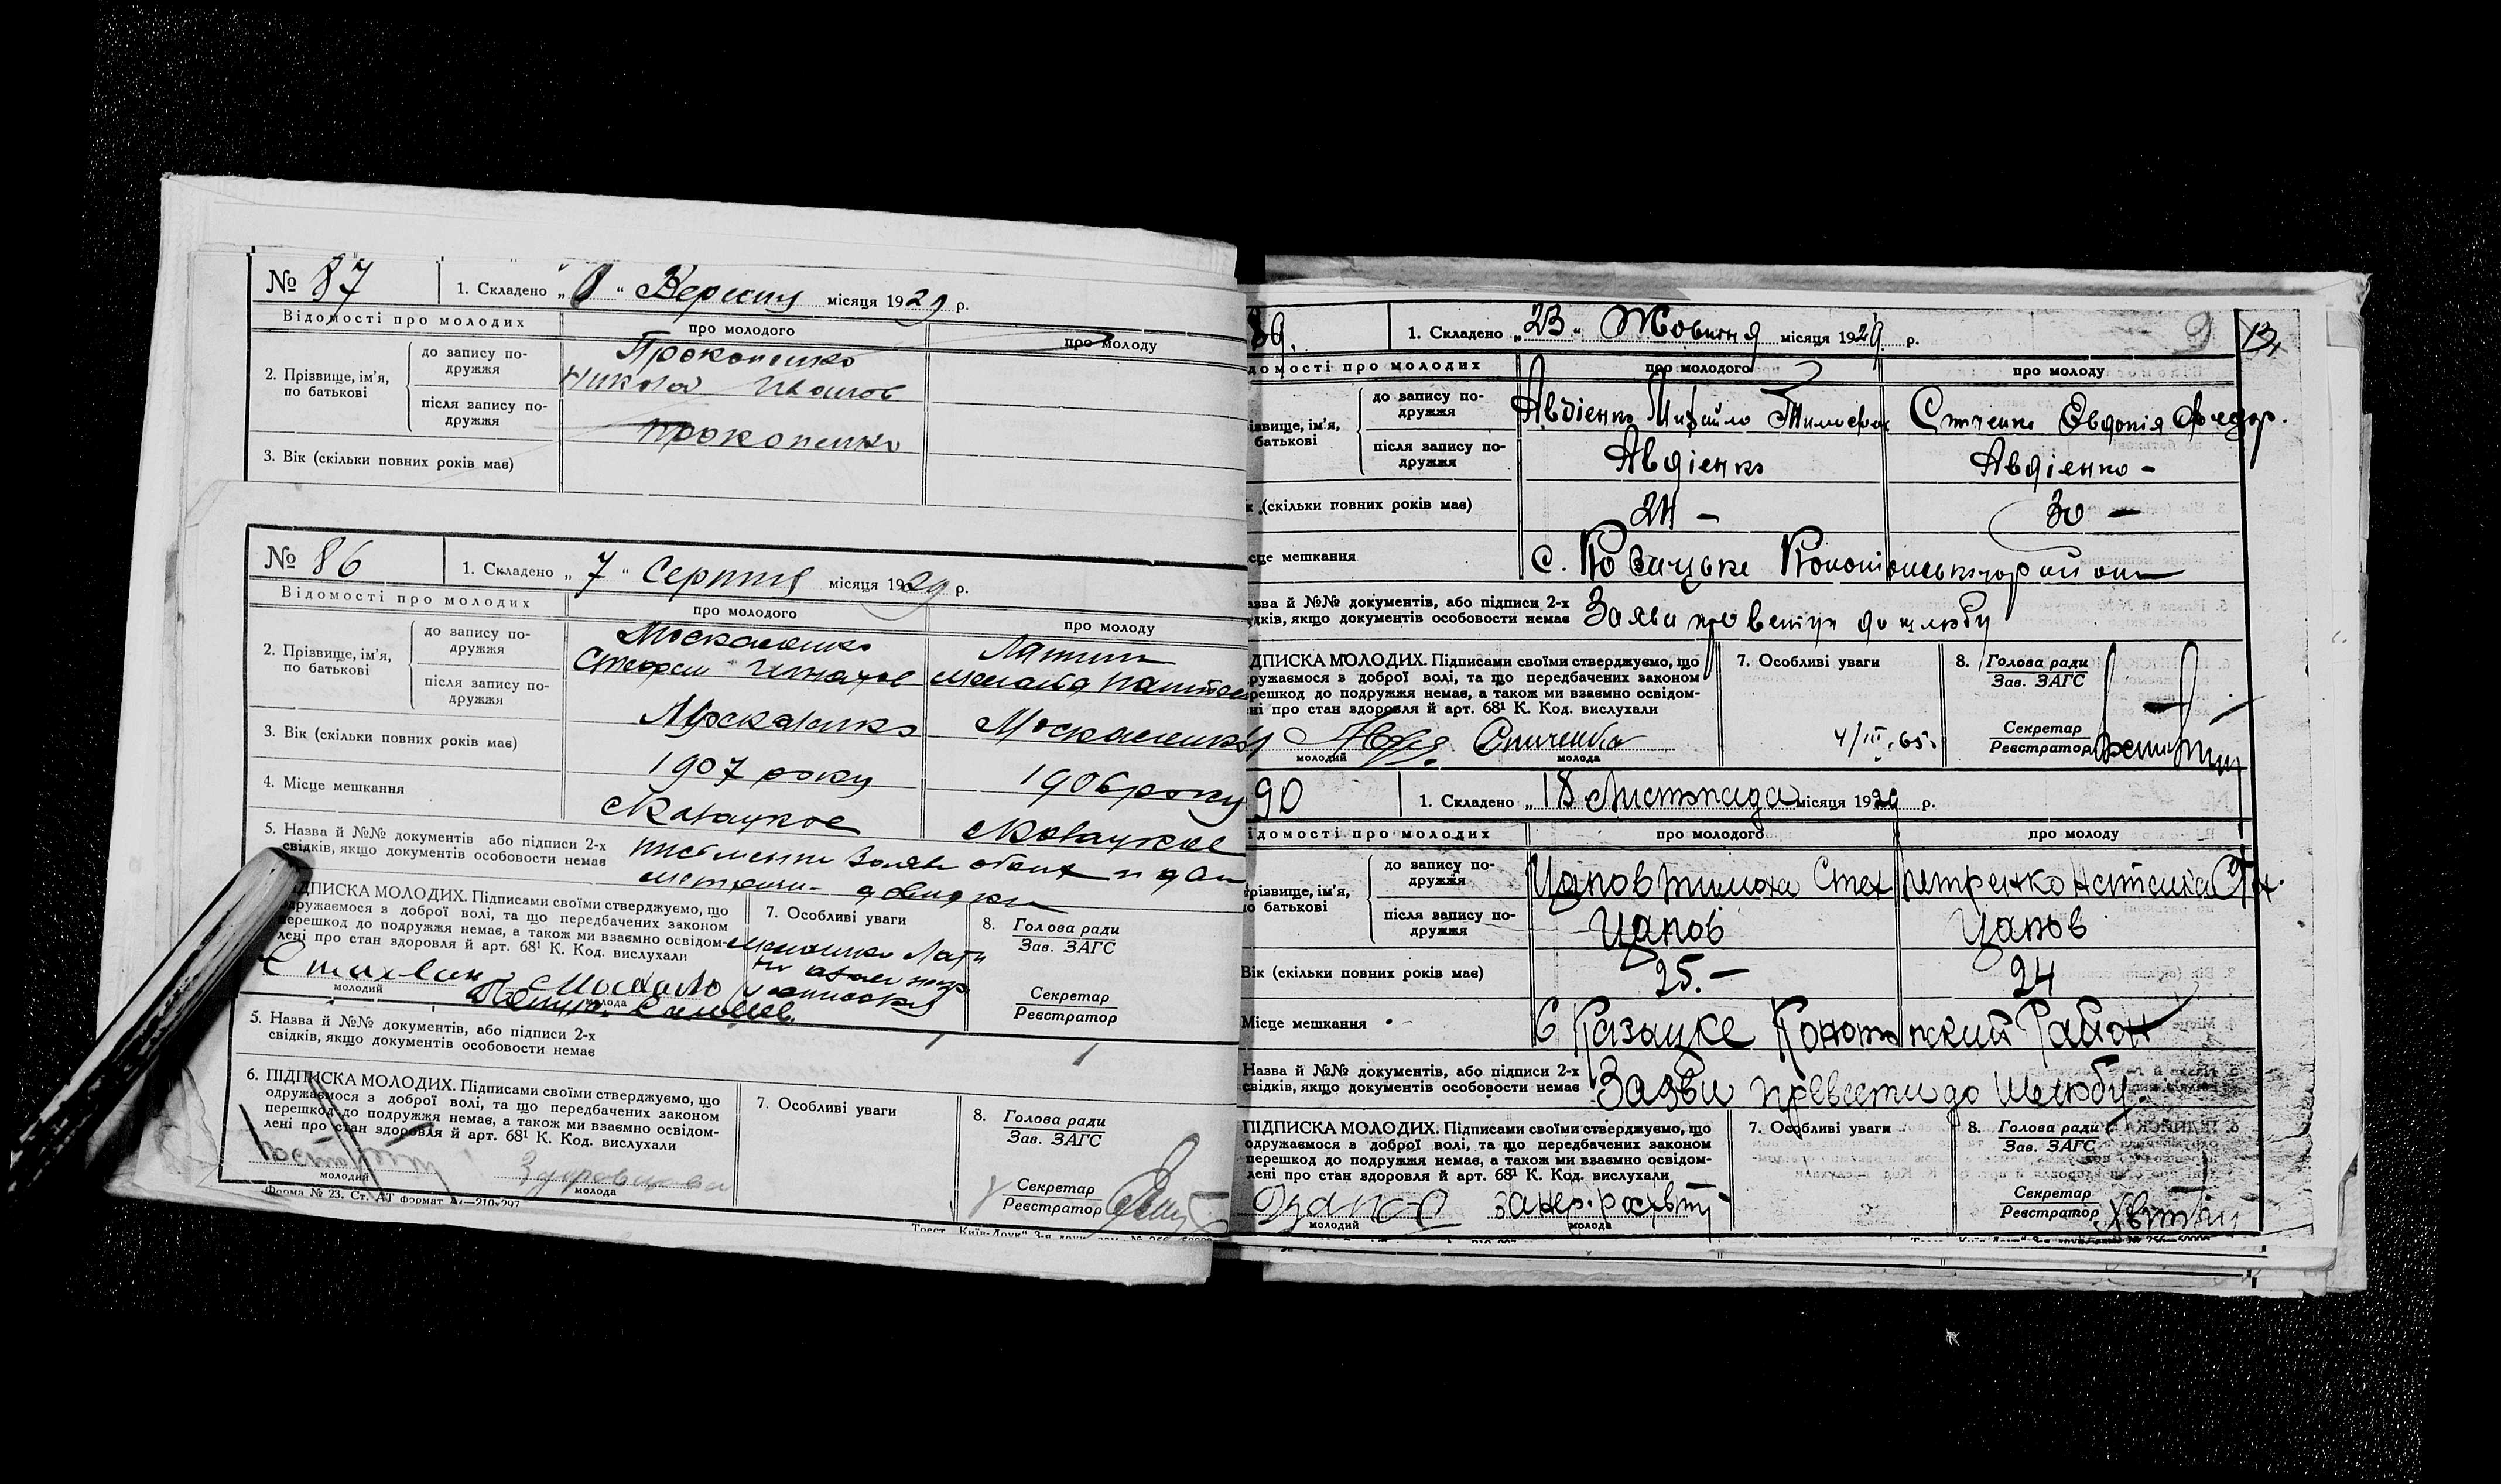 № 87
1. Складено „ 8 “ Вересня місяця 1929 р.
Відомості про молодих
про молодого
про молоду
2. Прізвище, ім’я, по батькові
до запису по-
дружжя
Прокопенко
Никола Иванов
після запису по-
дружжя
Прокопенко
3. Вік (скільки повних років має)
№ 86
1. Складено „ 7 “ Серпня місяця 1929 р.
Відомості про молодих
про молодого
про молоду
2. Прізвище, ім’я,
по батькові
до запису по-
дружжя
Москаленко
після запису по-
дружжя
Москаленко
Москаленко
3. Вік (скільки повних років має)
1907 року
1906 року
4. Місце мешкання
5. Назва й №№ документів або підписи 2-х
свідків, якщо документів особовости немає
ДПИСКА МОЛОДИХ. Підписами своїми стверджуємо, що
дружаємося з доброї волі, та що передбачених законом
перешкод до подружжя немає, а також ми взаємно освідом-
лені про стан здоровля й арт. 68¹ К. Код. вислухали
молодий
молода
7. Особливі уваги
8. Голова ради
Зав. ЗАГС
Секретар
Реєстратор
5. Назва й №№ документів, або підписи 2-х
свідків, якщо документів особовости немає
6. ПІДПИСКА МОЛОДИХ. Підписами своїми стверджуємо, що
одружаємося з доброї волі, та що передбачених законом
перешкод до подружжя немає, а також ми взаємно освідом-
лені про стан здоровля й арт. 68¹ К. Код. вислухали
молодий
молода
7. Особливі уваги
8. Голова ради
Зав. ЗАГС
Секретар
Реєстратор
Форма № 23. Ст. АТ формат А₄—210×297
89.
1. Складено „ 23 “ Жовтня місяця 1929 р.
9
домості про молодих
про молодого
про молоду
ізвище, ім’я,
батькові
до запису по-
дружжя
Авдіенко Михайло Тимофеев
Євдокія Федор.
після запису по-
дружжя
Авдіенко
Авдіенко -
к (скільки повних років має)
24 –
30 –
сце мешкання
с. Козацьке
азва й №№ документів, або підписи 2-х
дків, якщо документів особовости немає
Заяви про вступ до шлюбу
ДПИСКА МОЛОДИХ. Підписами своїми стверджуємо, що
ружаємося з доброї волі, та що передбачених законом
решкод до подружжя немає, а також ми взаємно освідом-
ні про стан здоровля й арт. 68¹ К. Код. вислухали
молодий
молода
7. Особливі уваги
4/III.65.
8. Голова ради
Зав. ЗАГС
Секретар
Реєстратор
90
1. Складено „ 18 Листопада місяця 1929 р.
ідомості про молодих
про молодого
про молоду
різвище, ім’я,
о батькові
до запису по-
дружжя
Цапов Тимоха Степ
Петренко Настасия
після запису по-
дружжя
Цапов
Цапов
Вік (скільки повних років має)
25.–
24
Місце мешкання
С Казацке Конотопский Район
Назва й №№ документів, або підписи 2-х
свідків, якщо документів особовости немає
Заяви до шлюбу.
ПІДПИСКА МОЛОДИХ. Підписами своїми стверджуємо, що
одружаємося з доброї волі, та що передбачених законом
перешкод до подружжя немає, а також ми взаємно освідом-
лені про стан здоровля й арт. 68¹ К. Код. вислухали
молодий
молода
7. Особливі уваги
8. Голова ради
Зав. ЗАГС
Секретар
Реєстратор